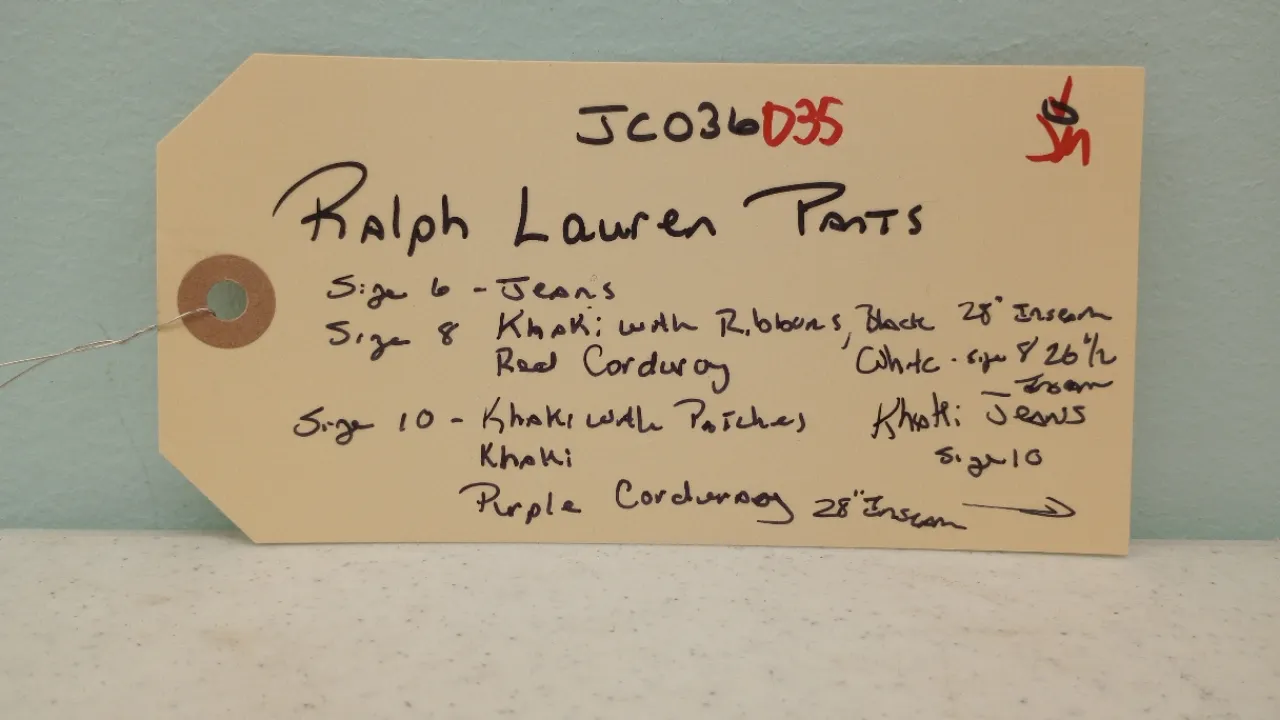 JC036D35
Ralph Lauren Pants
Size 6 - Jeans
Size 8 Khaki with Ribbons, Black 28" Inseam
Red Corduroy White - size 8 26 1/2
Inseam
Size 10 - Khaki with Patches Khaki Jeans
Khaki Size 10
Purple Corduroy 28" Inseam →